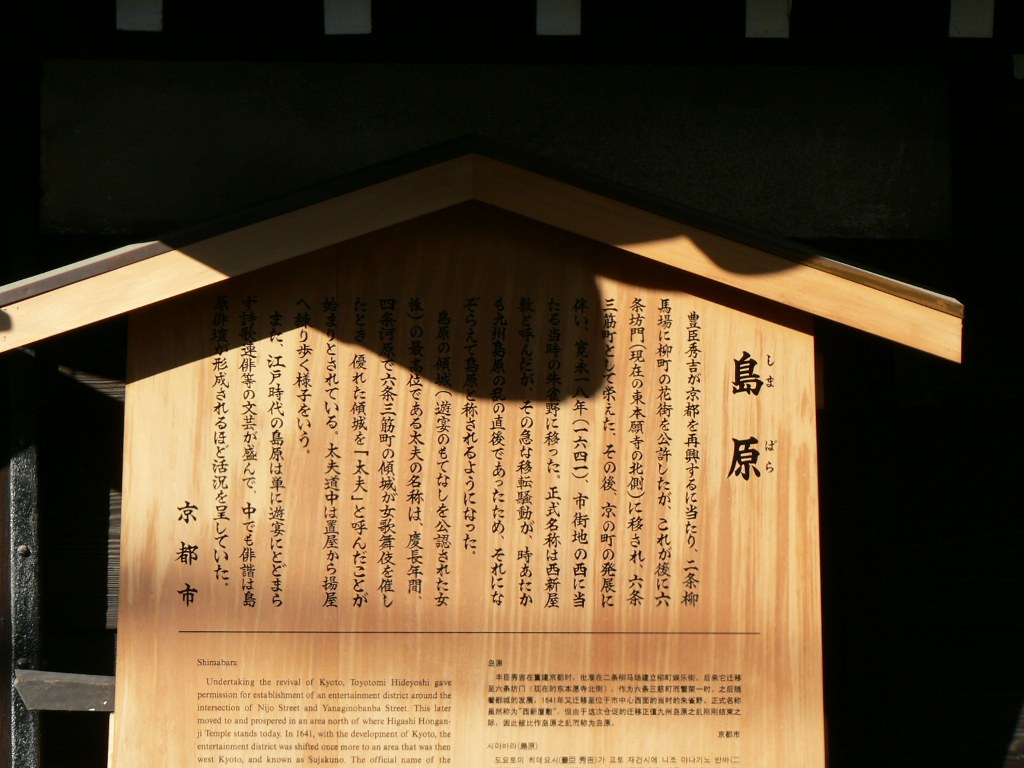 島原
しま ばら
豊臣秀吉が京都を再興するに当たり、二条柳
馬場に柳町の花街を公許したが、これが後に六
条坊門(現在の東本願寺の北側)に移され、六条
三筋町として栄えた。その後、京の町の発展に
伴い、寛永一八年(一六四一)、市街地の西に当
たる当時の朱雀野に移った。正式名称は西新屋
敷と呼んだが、その急な移転騒動が、時あたか
も九州島原の乱の直後であったため、それにな
ぞらえて島原と称されるようになった。
島原の傾城(遊宴のもてなしを公認された女
性)の最高位である太夫の名称は、慶長年間、
四条河原で六条三筋町の傾城が女歌舞伎を催し
たとき、優れた傾城を「太夫」と呼んだことが
始まりとされている。太夫道中は置屋から揚屋
へ練り歩く様子をいう。
また、江戸時代の島原は単に遊宴にとどまら
ず詩歌連俳等の文芸が盛んで、中でも俳諧は島
原俳壇が形成されるほど活況を呈していた。
京都市
Shimabara
Undertaking the revival of Kyoto, Toyotomi Hideyoshi gave
permission for establishment of an entertainment district around the
intersection of Nijo Street and Yanaginobanba Street. This later
moved to and prospered in an area north of where Higashi Hongan-
ji Temple stands today. In 1641, with the development of Kyoto, the
entertainment district was shifted once more to an area that was then
west Kyoto, and known as Sujakuno. The official name of the
岛原
丰臣秀吉在重建京都时,批准在二条柳马场建立柳町娱乐街,后来它迁移
至六条坊门(现在的东本愿寺北侧),作为六条三筋町而繁荣一时,之后随
着都城的发展,1641年又迁移至位于市中心西面的当时的朱雀野。正式名称
虽然称为"西新屋敷",但由于这次仓促的迁移正值九州岛原之乱刚刚结束之
际,因此被比作岛原之乱而称为岛原。
京都市
시마바라(島原)
도요토미 히데요시(豊臣 秀吉)가 교토 재건시에 니조 야나기노 반바(二